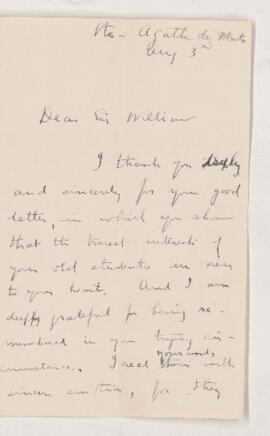 Ste Agathe des Monts
Aug 3rd
Dear Sir William
I thank you deeply
and sincerely for your good
letter, in which you show
that the truest interests of
your old students are near
to your heart. And I am
deeply grateful for being re-
membered in your trying cir-
cumstances. I read your words with
sincere emotion, for they